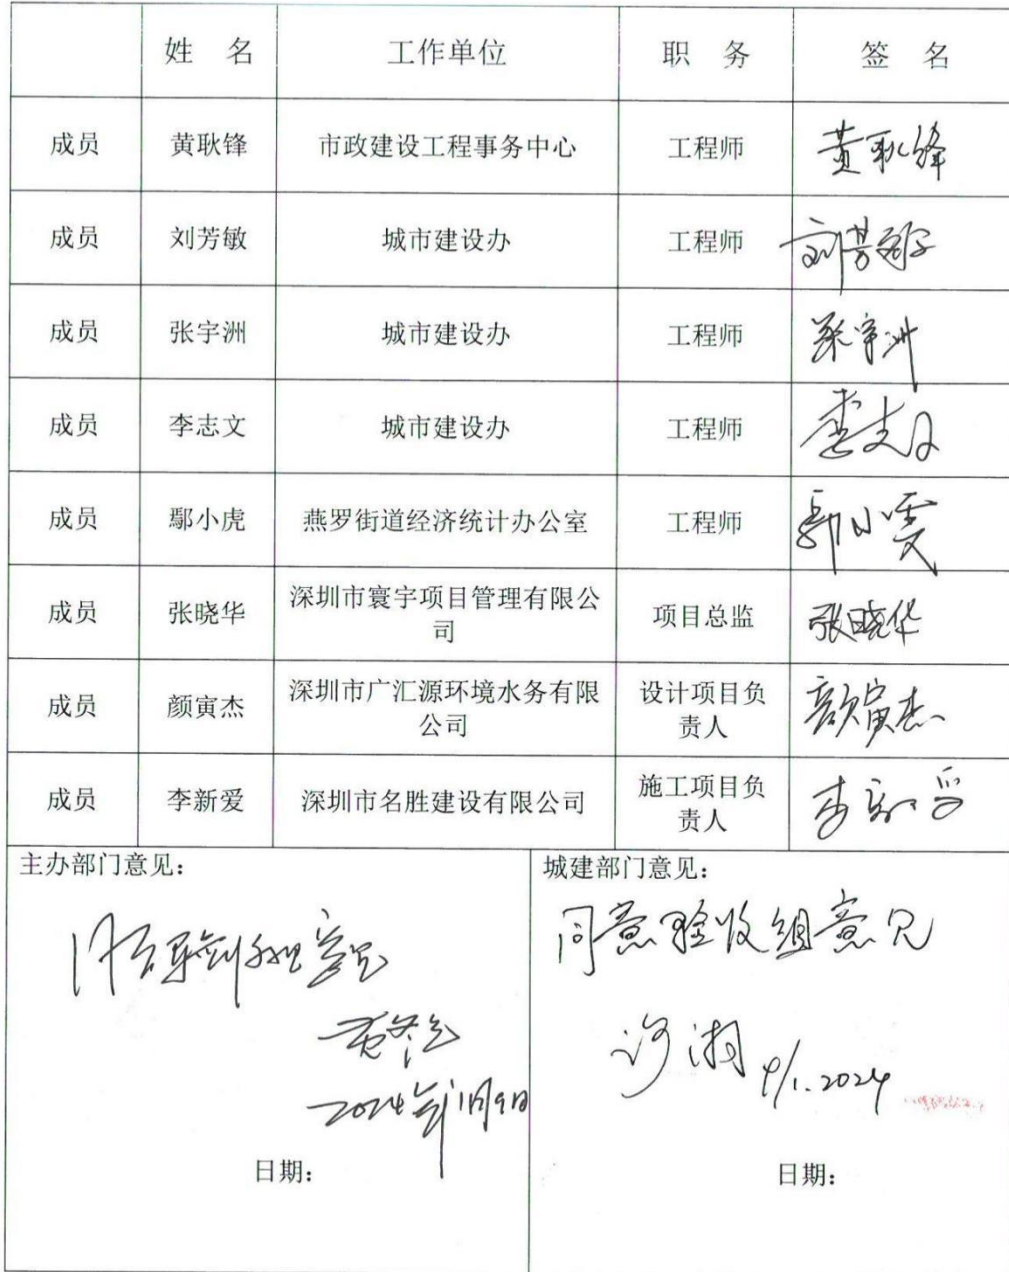 姓 名 工作单位 职 务 签 名
成员 黄耿锋 市政建设工程事务中心 工程师 黄耿锋
成员 刘芳敏 城市建设办 工程师 刘芳敏
成员 张宇洲 城市建设办 工程师 张宇洲
成员 李志文 城市建设办 工程师 李志文
成员 鄢小虎 燕罗街道经济统计办公室 工程师
成员 张晓华 深圳市寰宇项目管理有限公
司 项目总监 张晓华
成员 颜寅杰 深圳市广汇源环境水务有限
公司 设计项目负
责人 颜寅杰
成员 李新爱 深圳市名胜建设有限公司 施工项目负
责人 李新爱
主办部门意见：
2024年1月9日
日期：
城建部门意见：
同意验收组意见
/1.2024
日期：